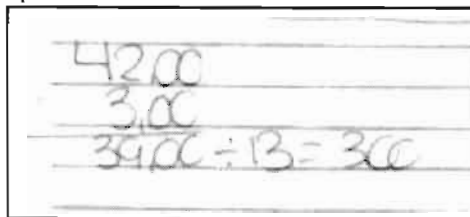 42,00
3,00
39,00 ÷ 13 = 3,00